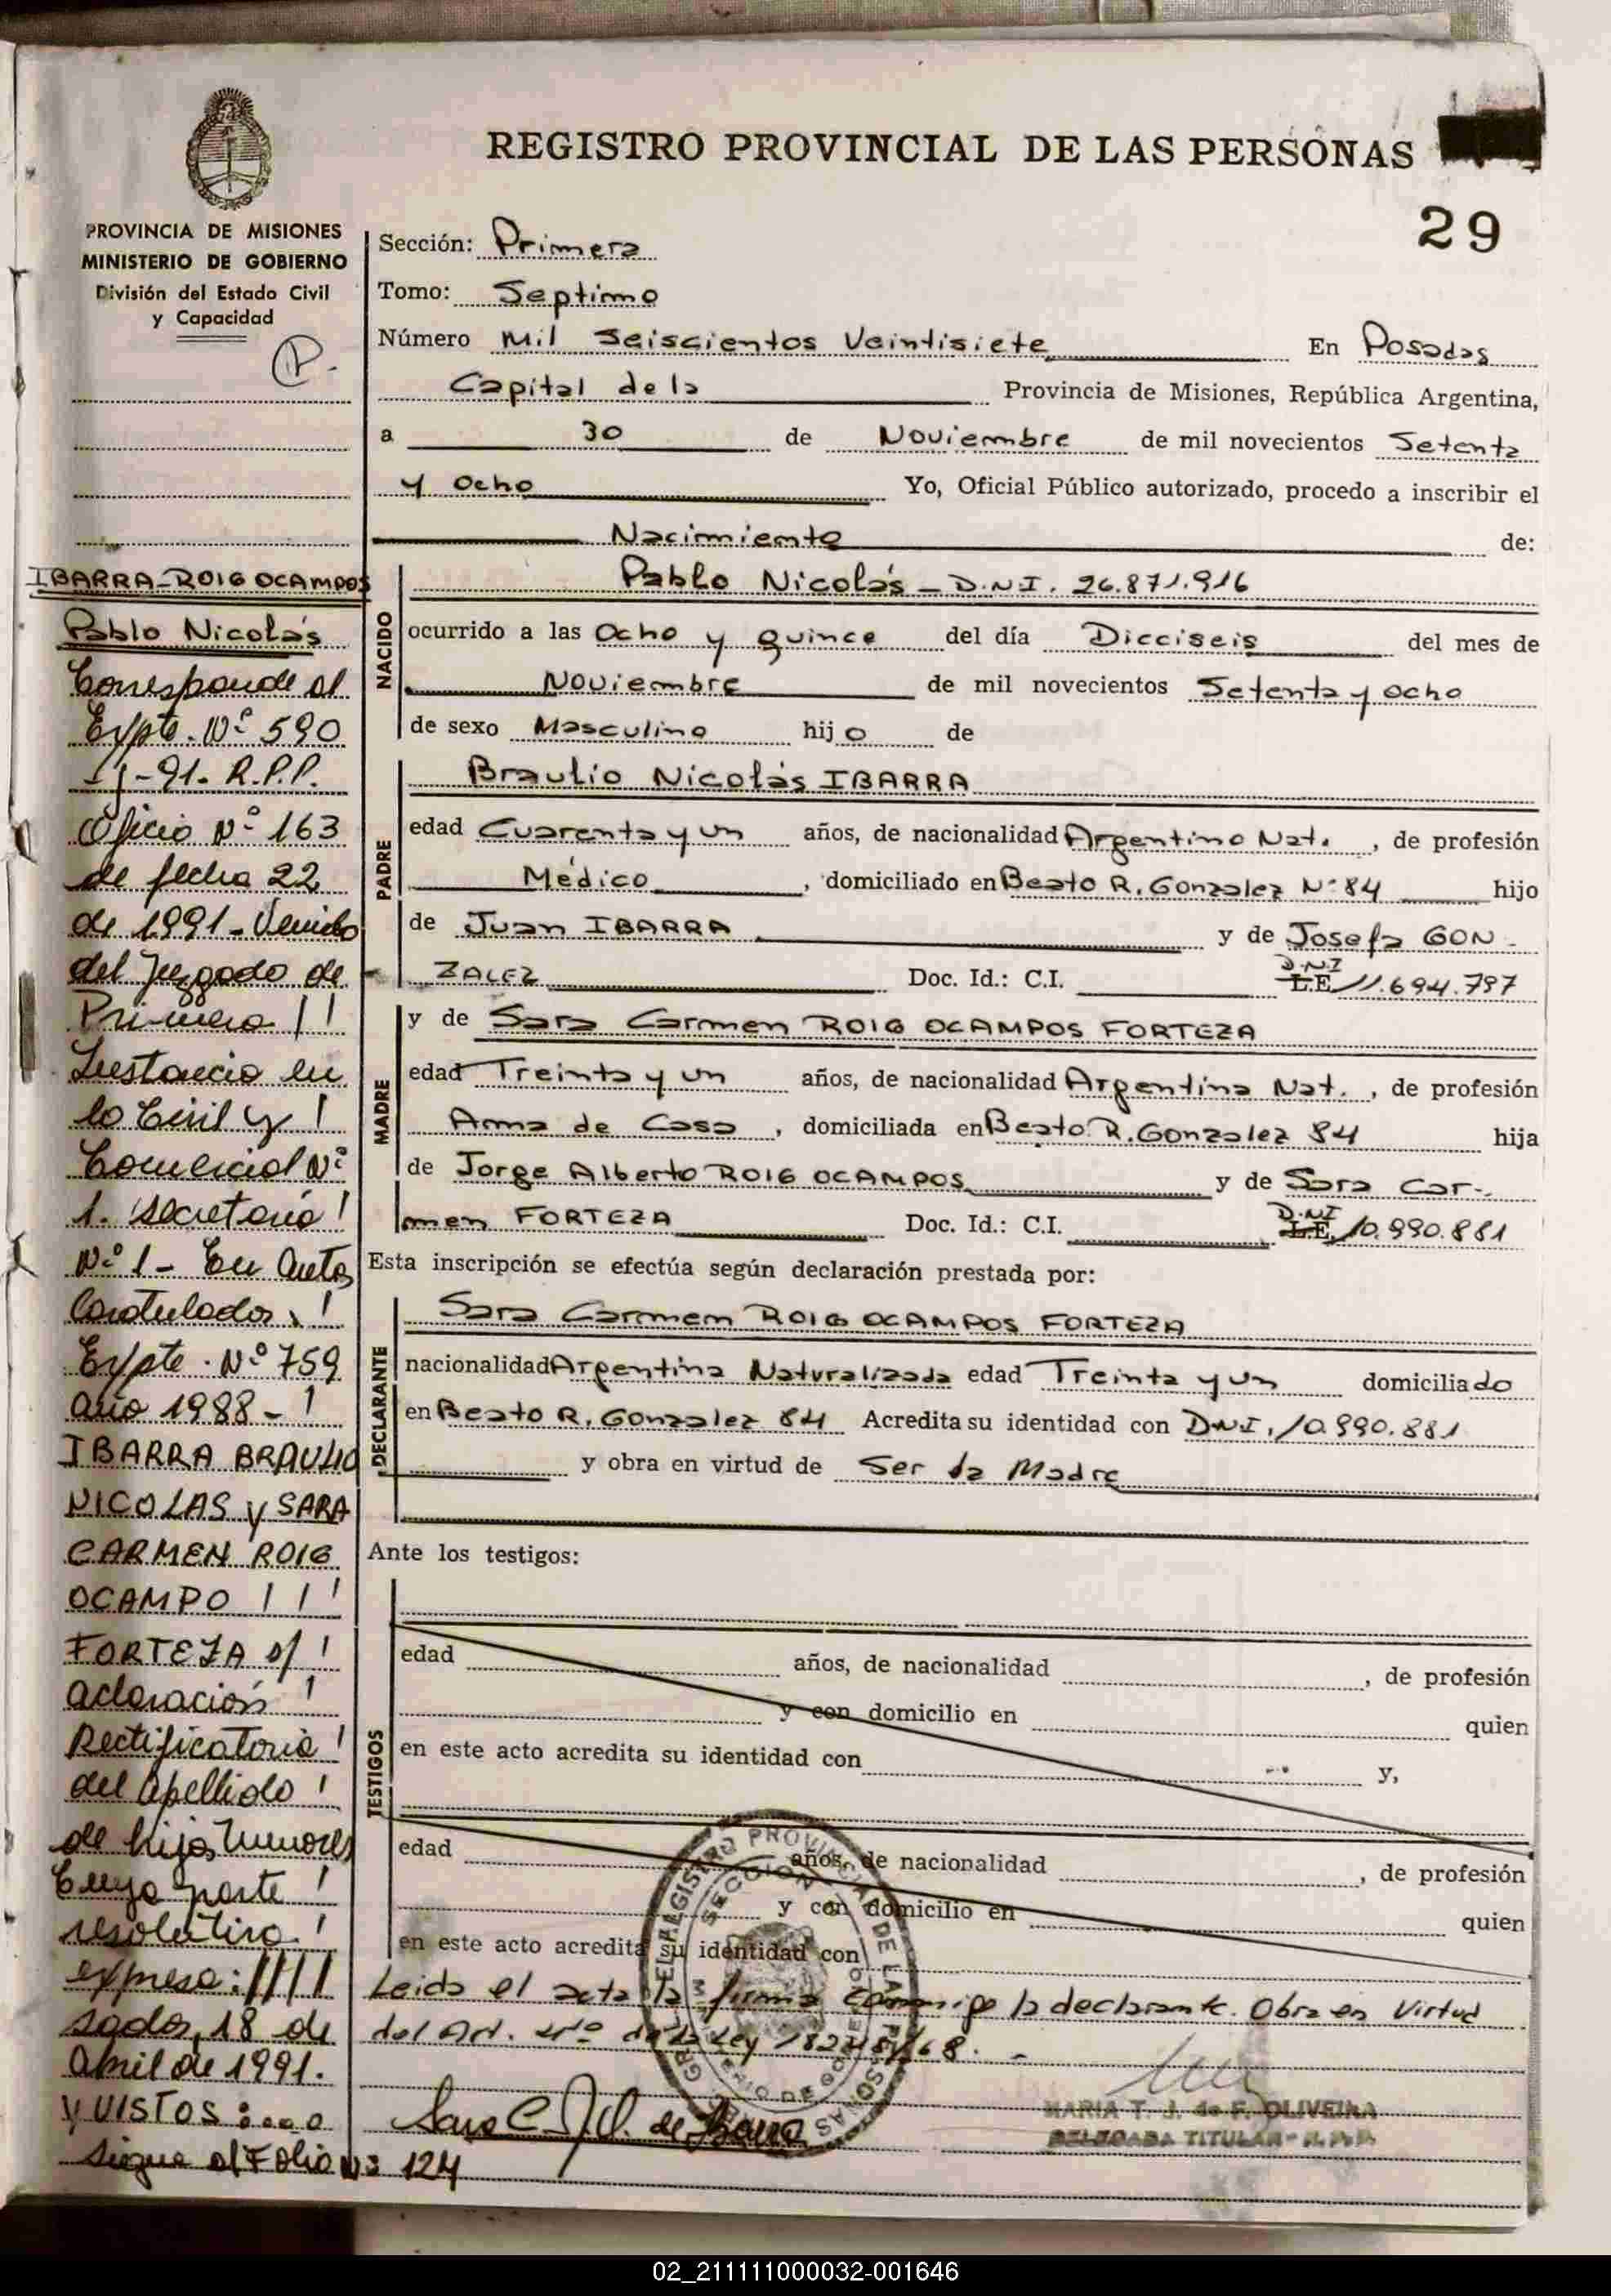 REGISTRO PROVINCIAL DE LAS PERSONAS
29
PROVINCIA DE MISIONES
MINISTERIO DE GOBIERNO
División del Estado Civil
y Capacidad
Sección: Primera
Tomo: Septimo
Número Mil Seiscientos Veintisiete En Posadas
Capital de la Provincia de Misiones, República Argentina,
a 30 de Noviembre de mil novecientos Setenta
y Ocho Yo, Oficial Público autorizado, procedo a inscribir el
Nacimiento de:
NACIDO
Pablo Nicolás - D.N.I. 26.871.916
ocurrido a las Ocho y quince del día Dicciseis del mes de
Noviembre de mil novecientos Setenta y ocho
de sexo Masculino hijo de
PADRE
Braulio Nicolás IBARRA
edad Cuarenta y un años, de nacionalidad Argentino Nat. , de profesión
Médico , domiciliado en Beato R. Gonzalez Nº 84 hijo
de Juan IBARRA y de Josefa GON-
ZALEZ Doc. Id.: C.I. D.N.I L.E. 11.694.797
MADRE
y de Sara Carmen ROIG OCAMPOS FORTEZA
edad Treinta y un años, de nacionalidad Argentina Nat. , de profesión
Ama de Casa , domiciliada en Beato R. Gonzalez 84 hija
de Jorge Alberto ROIG OCAMPOS y de Sara Car-
men FORTEZA Doc. Id.: C.I. D.N.I L.E. 10.990.881
Esta inscripción se efectúa según declaración prestada por:
DECLARANTE
Sara Carmen ROIG OCAMPOS FORTEZA
nacionalidad Argentina Naturalizada edad Treinta y un domiciliado
en Beato R. Gonzalez 84 Acredita su identidad con D.N.I. 10.990.881
y obra en virtud de Ser la Madre
Ante los testigos:
TESTIGOS
edad años, de nacionalidad , de profesión
y con domicilio en quien
en este acto acredita su identidad con y,
edad años, de nacionalidad , de profesión
y con domicilio en quien
en este acto acredita su identidad con
Leida el acta la firma conmigo la declarante. Obra en Virtud
del Art. de la Ley 18248/68. -
Sara C. de Ibarra
MARIA T. J. de F. OLIVEIRA
DELEGADA TITULAR - R.P.P.
REGISTRO PROVINCIAL DE LAS PERSONAS
SECCION
P.
IBARRA-ROIG OCAMPOS
Pablo Nicolás
Corresponde al
Expte. Nº 590
-91- R.P.P.
Oficio Nº 163
de fecha 22
de 1991 - Venido
del Juzgado de
Primera
Instancia en
lo Civil y
Comercial Nº
1. Secretaría
Nº 1 - En Autos
Caratulados,
Expte. Nº 759
año 1988 -
IBARRA BRAULIO
NICOLAS y SARA
CARMEN ROIG
OCAMPO
FORTEZA s/
aclaración
Rectificatoria
del apellido
de hijos menores
Cuya parte
resolutiva
expresa:
sadas, 18 de
abril de 1991.
Y VISTOS:....
Sigue al Folio Nº 124
02_211111000032-001646